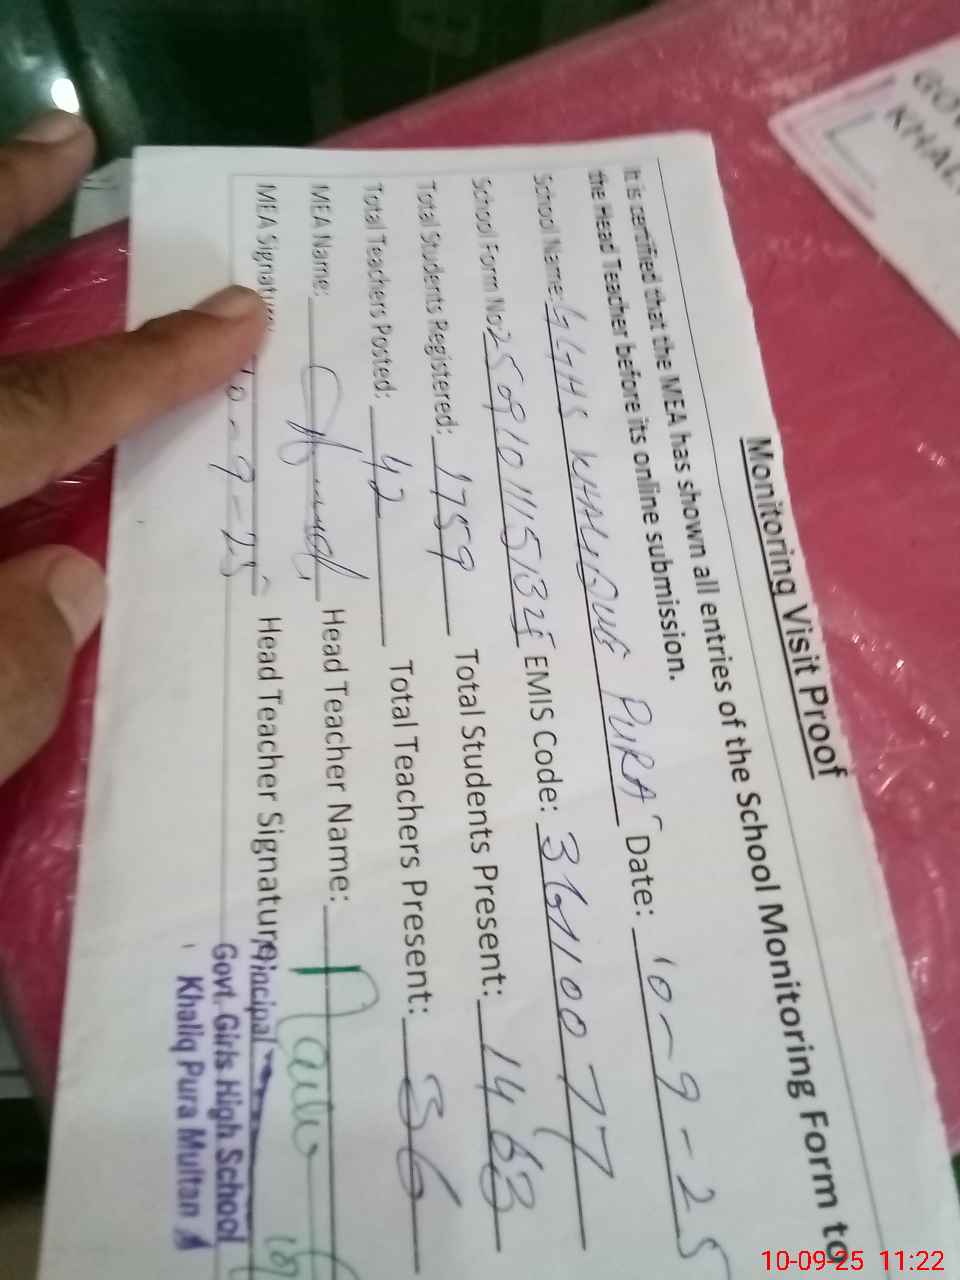 Monitoring Visit Proof
It is certified that the MEA has shown all entries of the School Monitoring Form to
the Head Teacher before its online submission.
School Name: GGHS KHALIQUE PURA Date: 10-9-25
School Form No: EMIS Code: 36110077
Total Students Registered: 1759 Total Students Present: 1463
Total Teachers Posted: 42 Total Teachers Present: 36
MEA Name: Head Teacher Name:
MEA Signature: 10-9-25 Head Teacher Signature:
Principal
Govt. Girls High School
Khaliq Pura Multan
GOV
KHAL
10-09-25 11:22